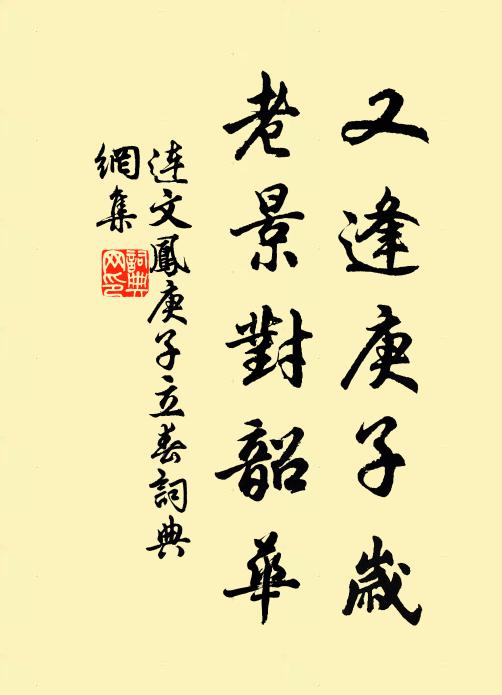 又逢庚子歲
老景對韶華
連文鳳庚子立春詞典
網集
詞典
网印